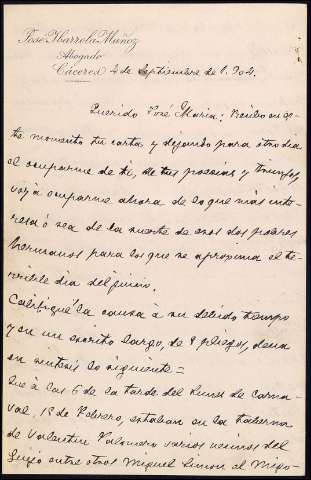 José Ibarrola Muñoz
Abogado
Cáceres 4 de Septiembre de 1.904.
Querido José María: Recibo en es-
te momento tu carta y dejando para otro dia
el ocuparme de ti, de tus poesias y triunfos,
voy à ocuparme ahora de lo que más inte-
resa ó sea de la suerte de esos dos pobres
hermanos para los que se aproxima el te-
rrible dia del juicio.
Califiqué la causa à su debido tiempo
y en un escrito largo, de 8 pliegos, decia
en sintesis lo siguiente=
Que à las 6 de la tarde del lunes de carna-
val, 15 de Febrero, estaban en la taberna
de Valentin Palomero varios vecinos del
Guijo entre otros Miguel Simon el